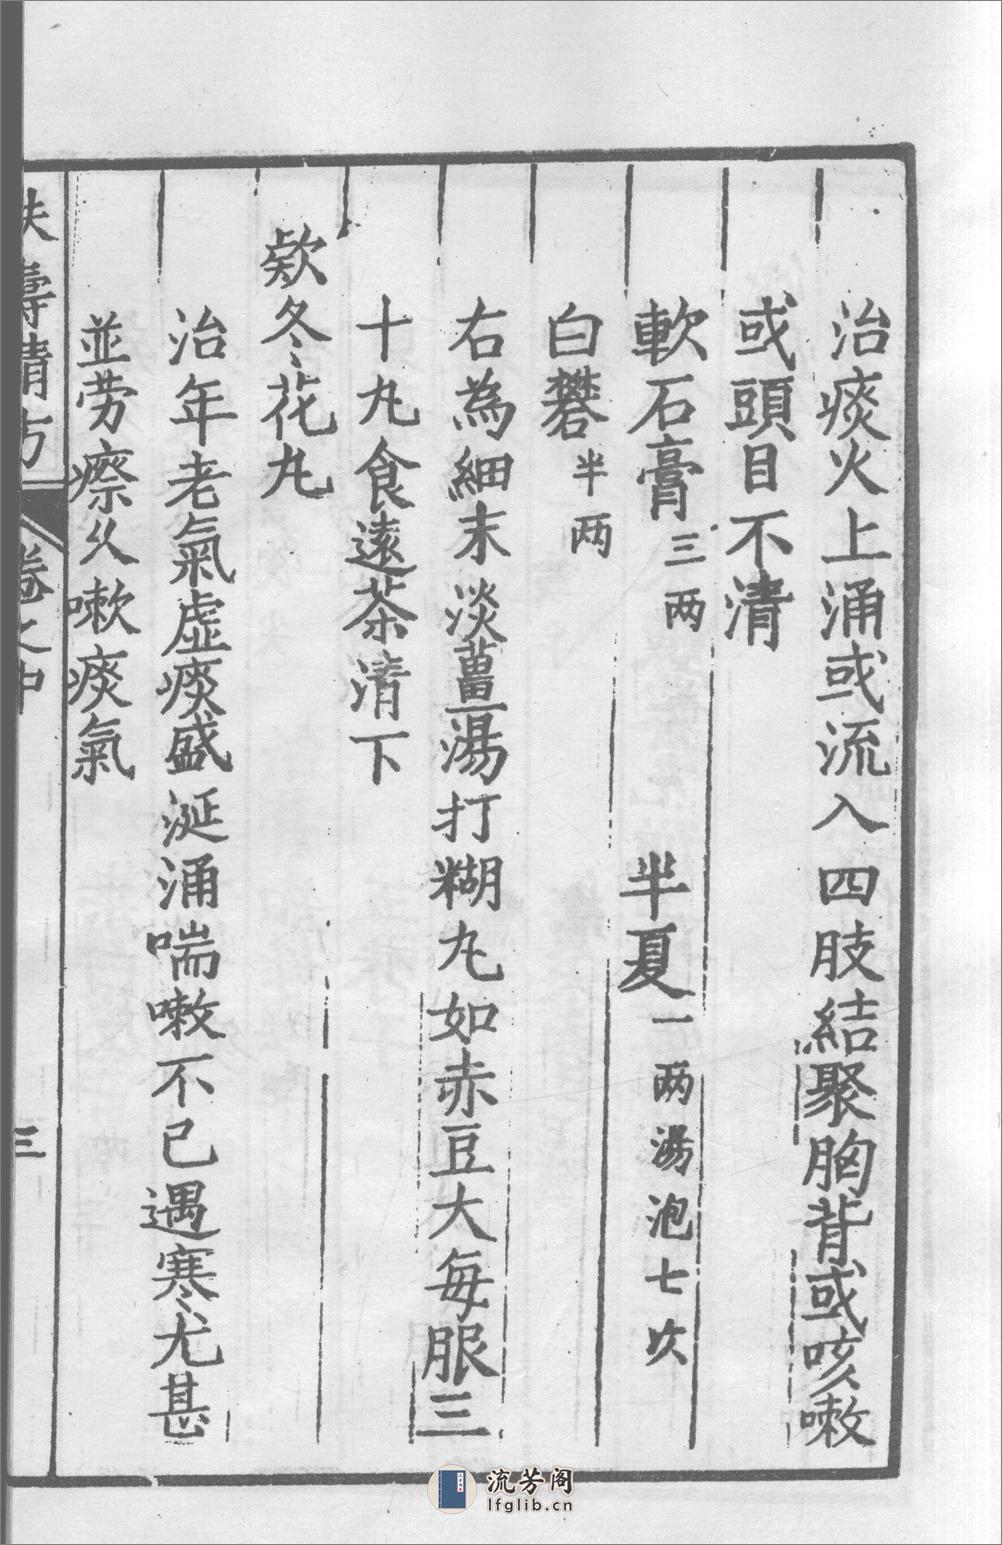 治痰火上涌或流入四肢結聚胸背或咳嗽
或頭目不清
軟石膏三两 半夏一两湯泡七次
白礬半两
右為細末淡薑湯打糊丸如赤豆大每服三
十丸食遠茶清下
欵冬花丸
治年老氣虛痰盛涎涌喘嗽不已遇寒尤甚
並劳瘵久嗽痰氣
扶壽精方 卷之中 三
流芳阁
lfglib.cn